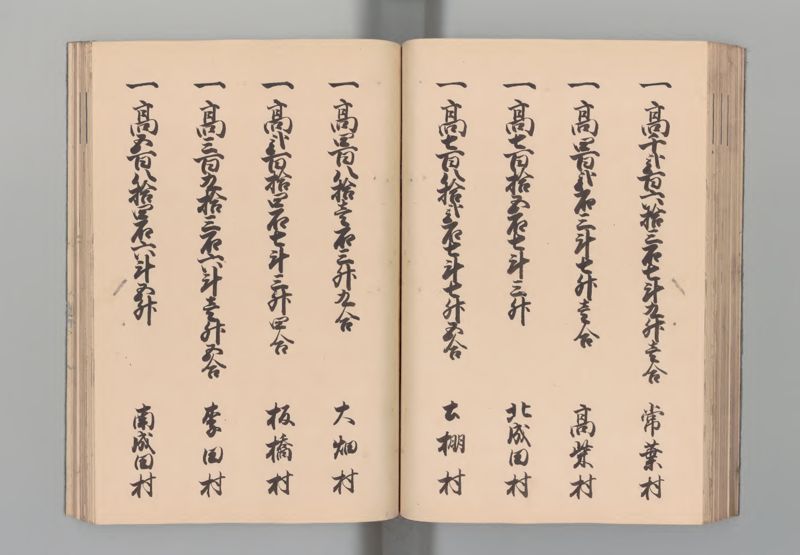 一高千弐百六拾三石七斗九升壱合 常葉村
一高四百弐石三斗七升壱合 高柴村
一高七百拾五石七斗三升 北成田村
一高七百八拾弐石七斗七升五合 土棚村
一高四百八拾壱石三升九合 大畑村
一高弐百拾四石七斗三升四合 板橋村
一高三百九拾三石六斗壱升五合 李田村
一高五百八拾四石六斗五升 南成田村